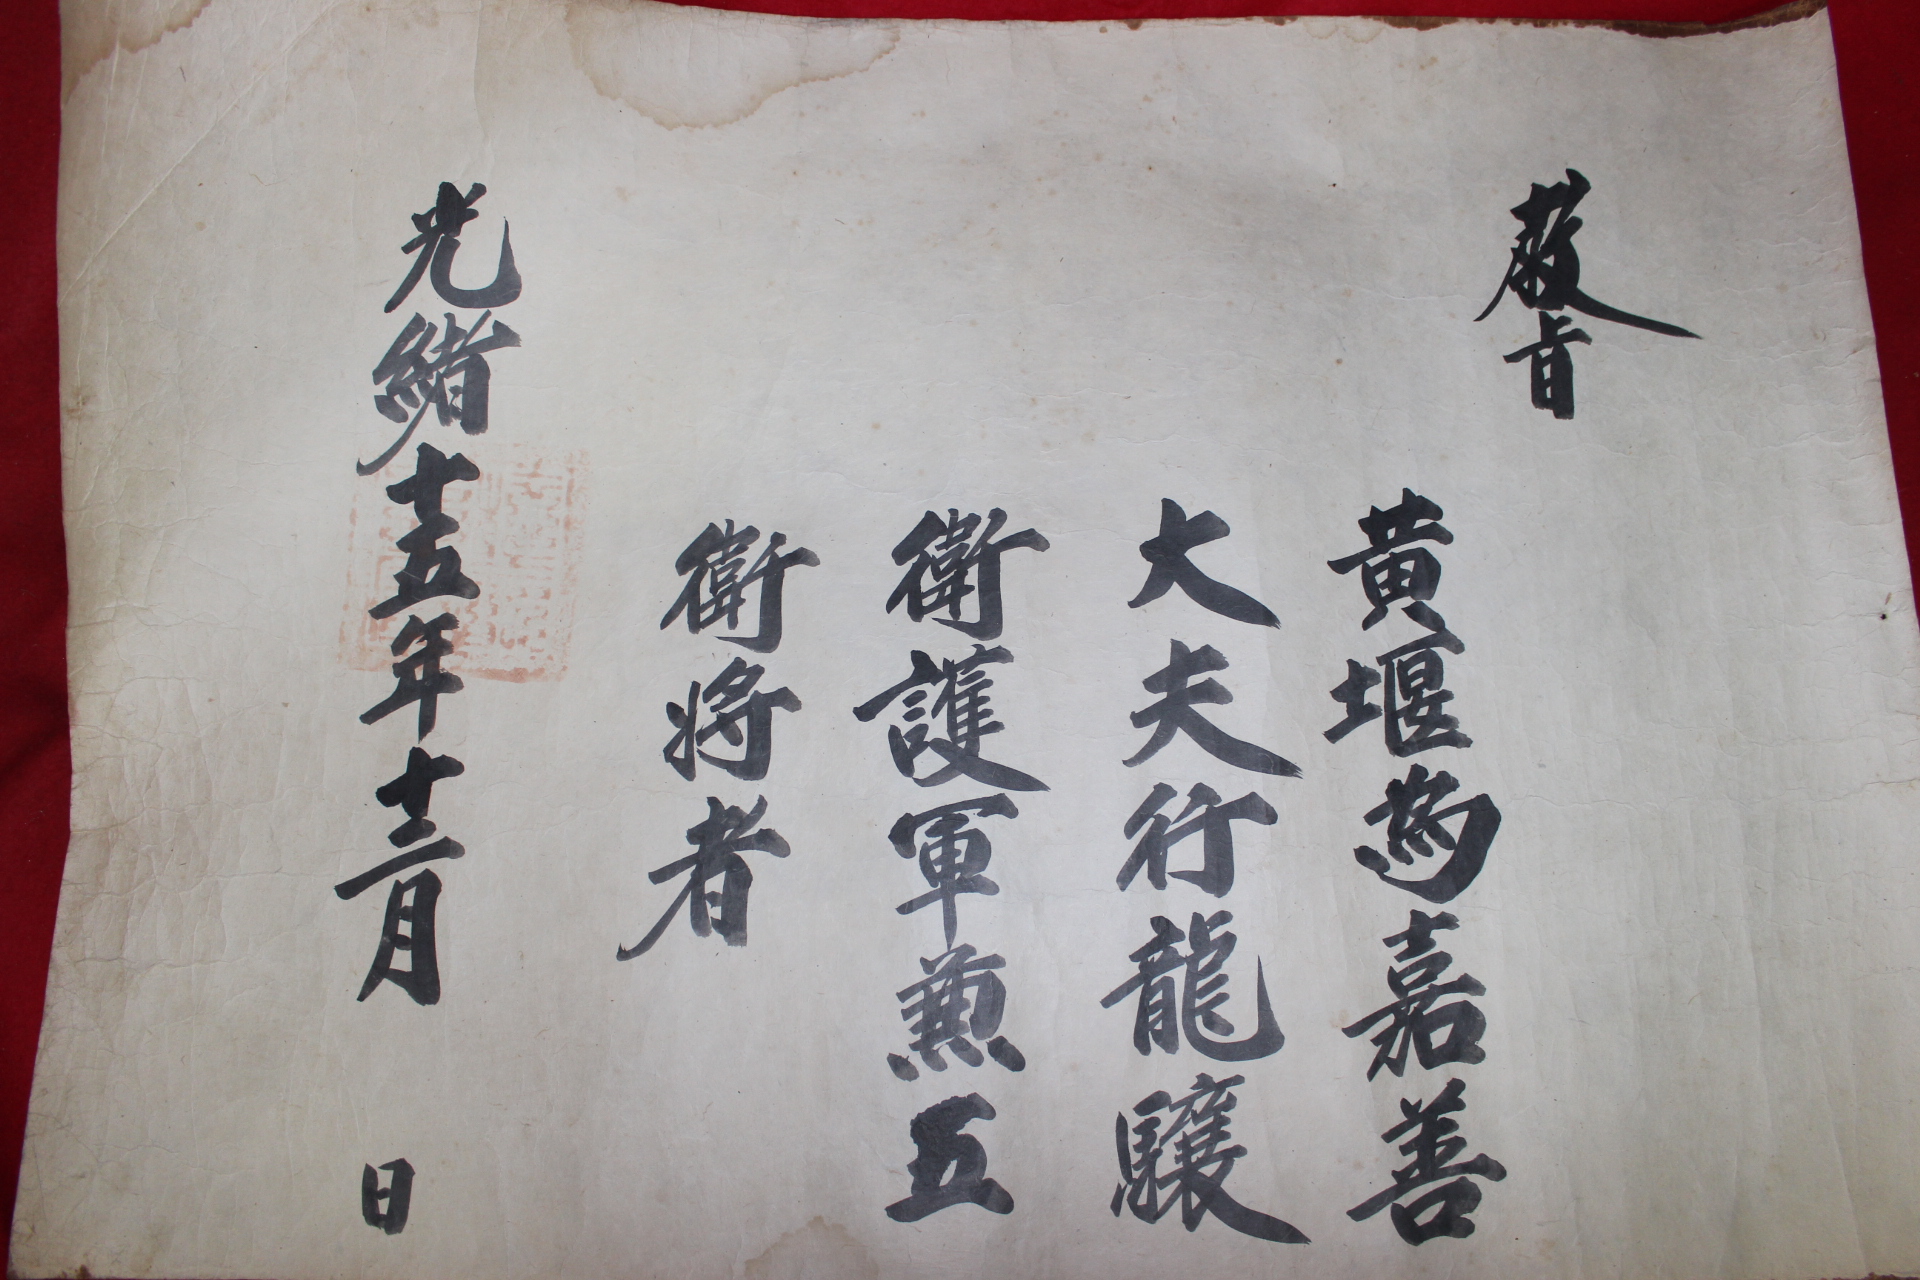 敎旨
黄堰為嘉善
大夫行龍驤
衛護軍兼五
衛將者
光緒十五年十二月 日